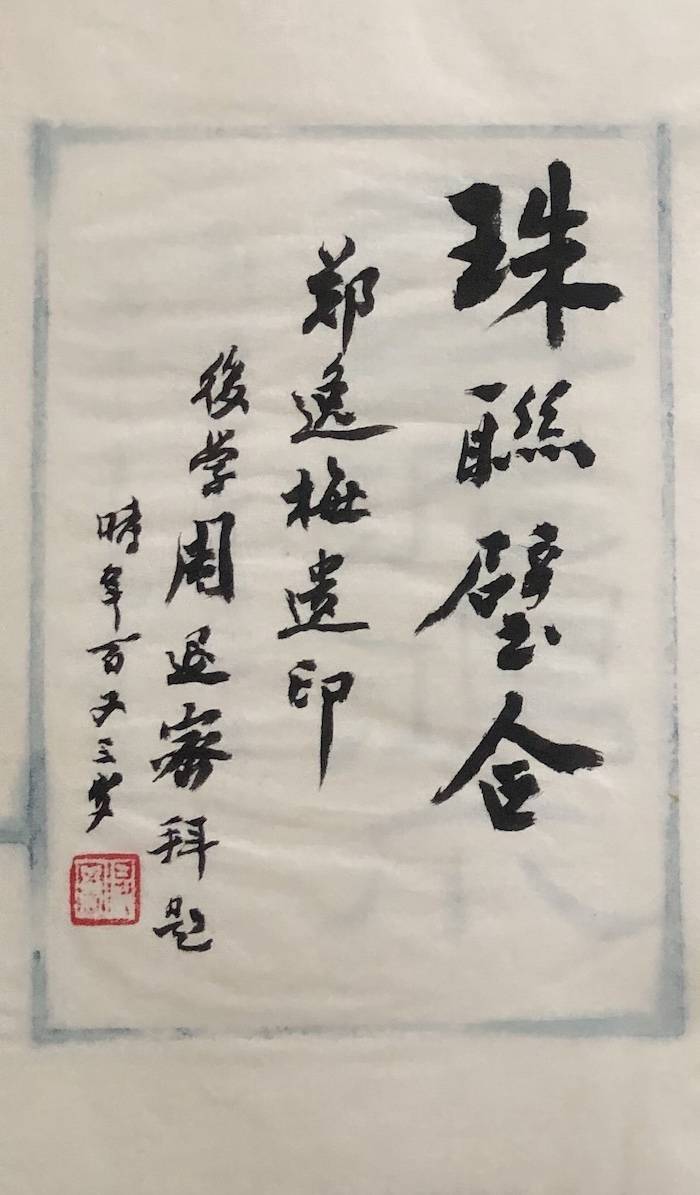 珠聯璧合
鄭逸梅遺印
後学周退密拜題
時年百又三岁